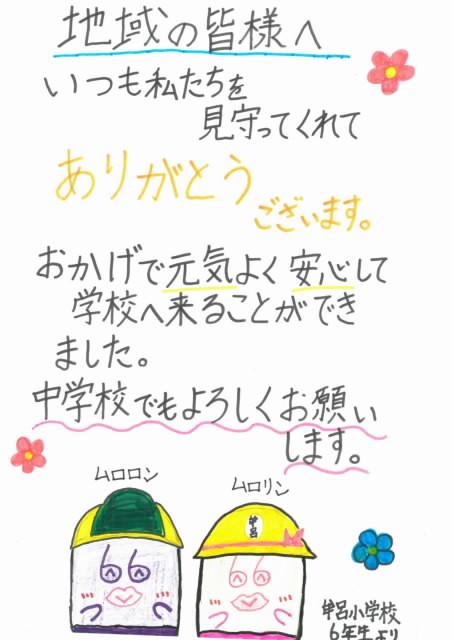 地域の皆様へ
いつも私たちを
見守ってくれて
ありがとう
ございます。
おかげで元気よく安心して
学校へ来ることができ
ました。
中学校でもよろしくお願い
します。
ムロロン
ムロリン
牟呂
牟呂小学校
6年生より